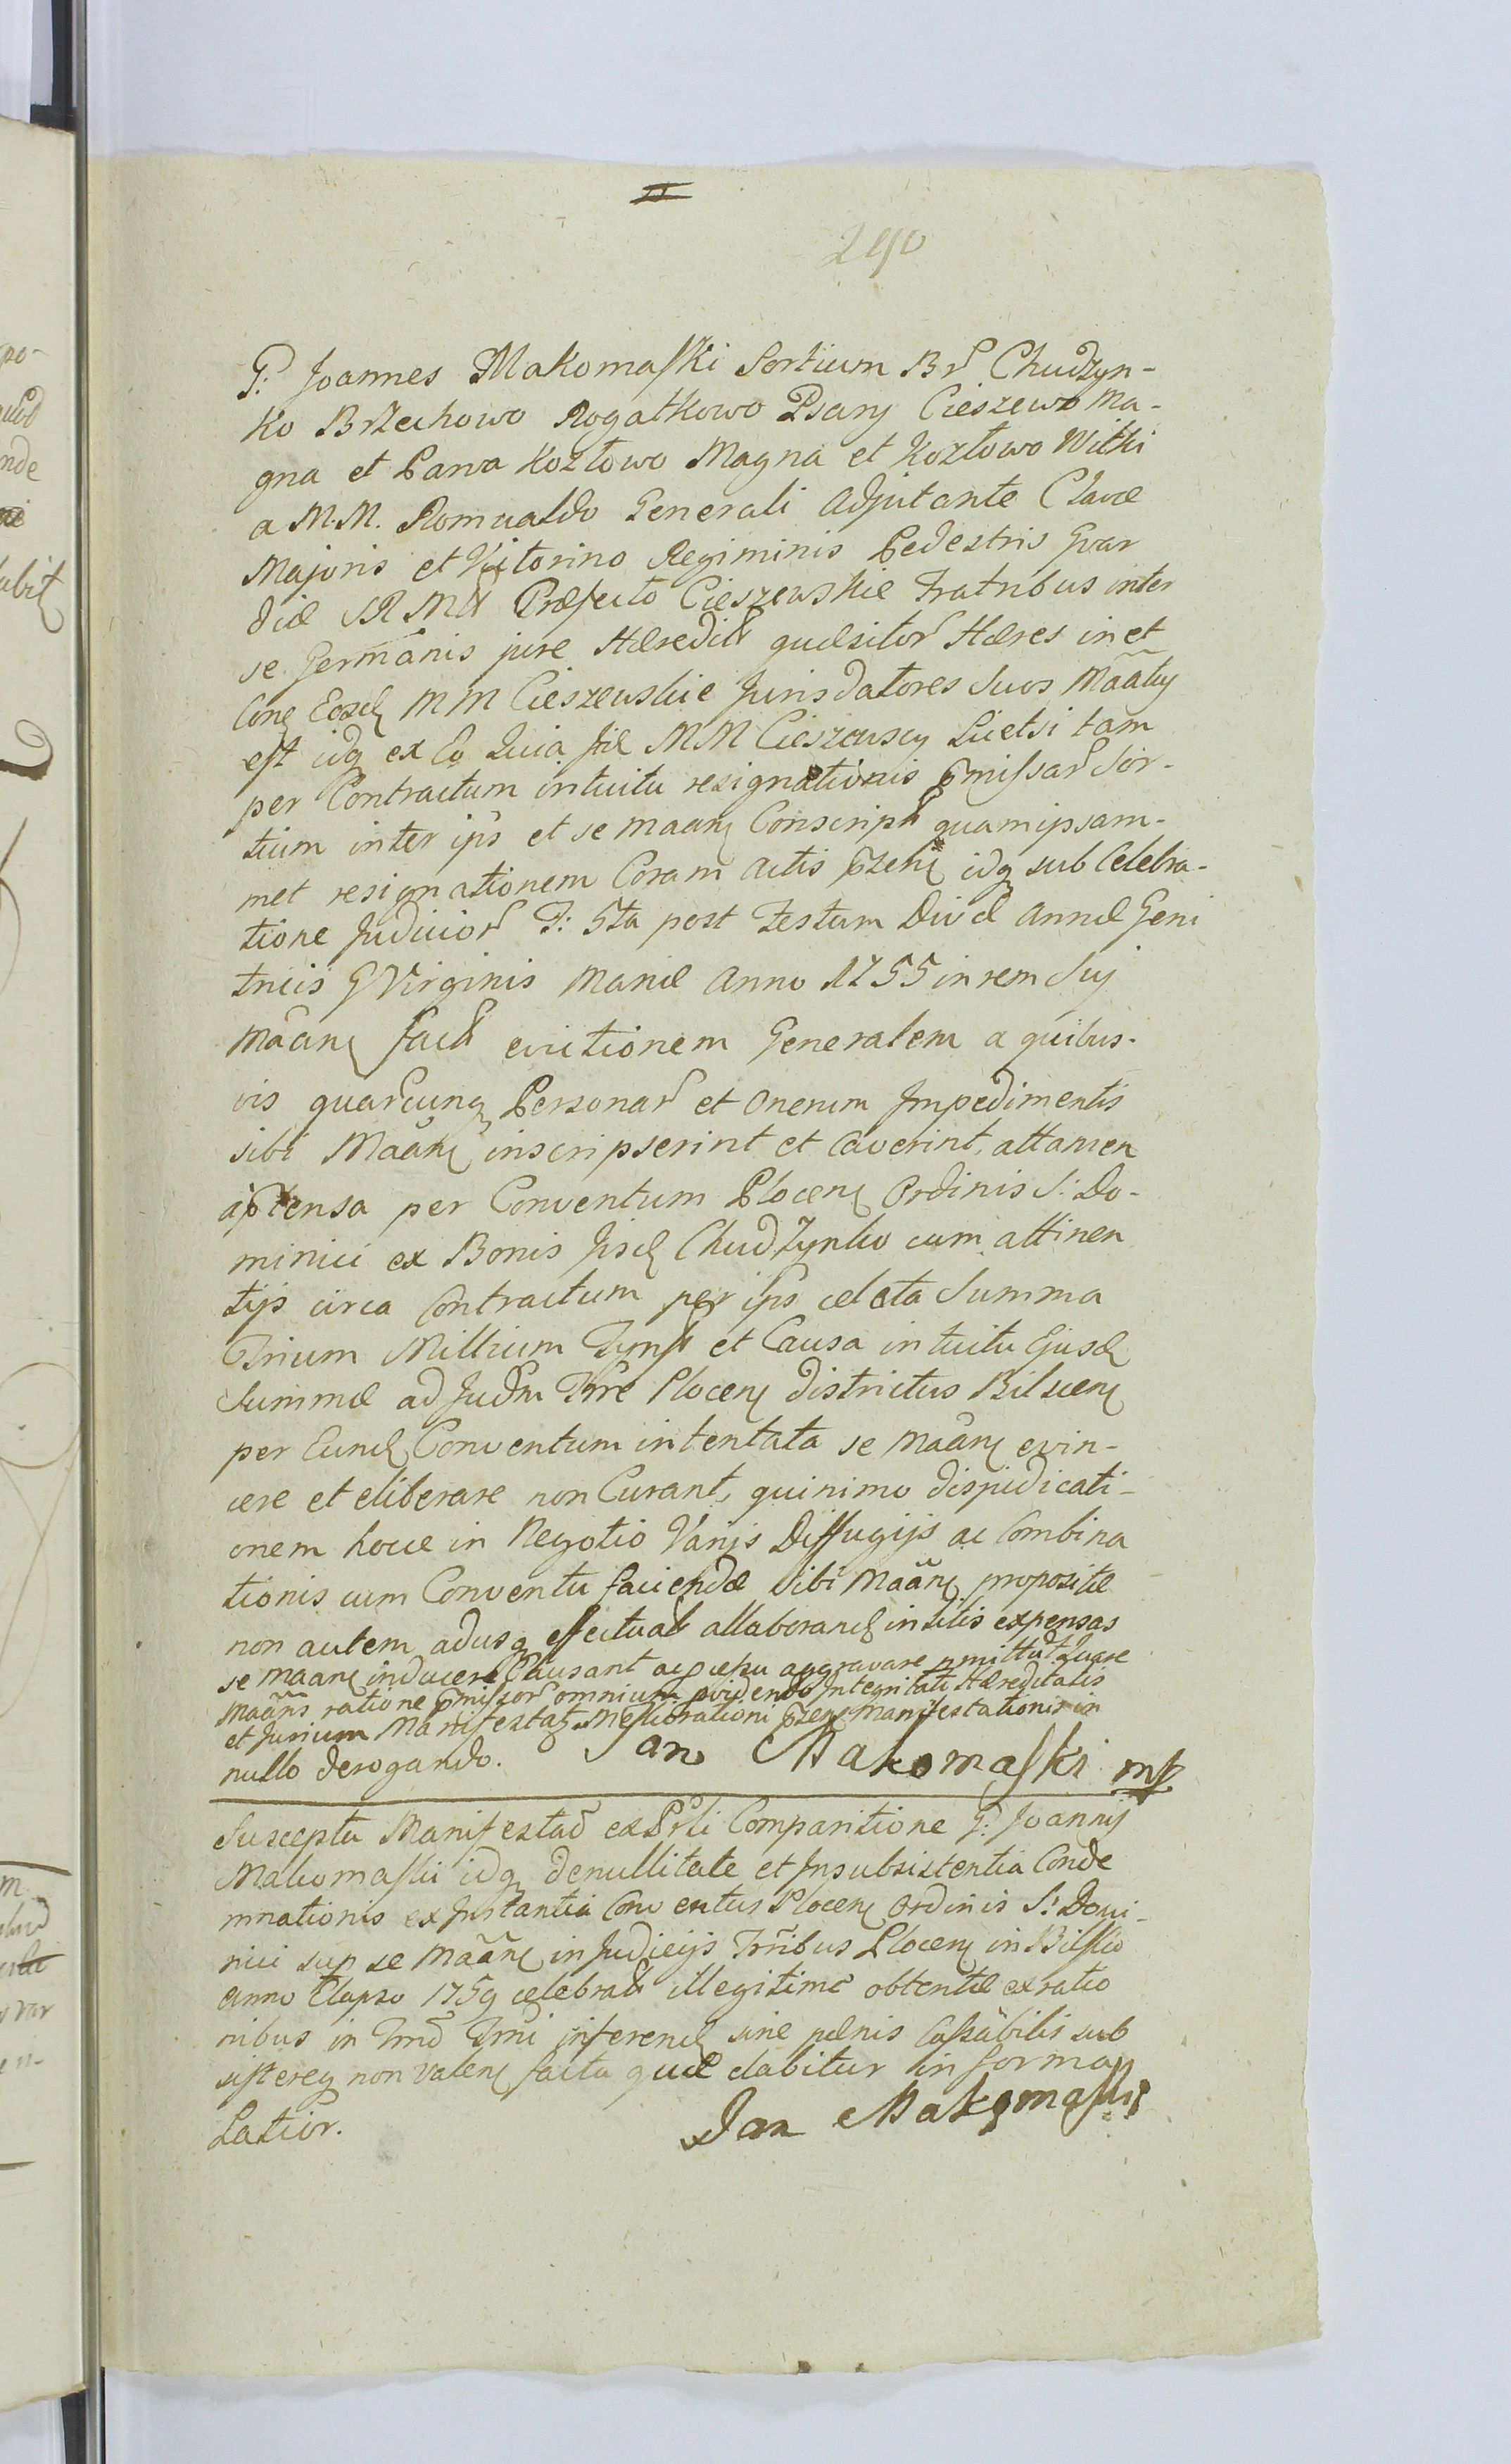 290
G: Joannes Makomaſki Sortium Br Chudzyn-
ko Brzechowo Rogatkowo Psary Cieszewo Ma-
gna et Parva Kozłowo Magna et Kozłowo Witki
a M.M. Romualdo Generali Adjutante Clavæ
Majoris et Vitorino Regiminis Pedestris Gvar
diæ SRM Præfecto Cieszewskie Fratribus inter
se Germanis jure Hæredit quæsitor Hæres in et
MM Cieszewskie Jurisdatores Suos
eſt idq ex Eo Quia MM Cieszewscy Licetsi tam
per Contractum intuitu resignationis pmiſsar Sor-
tium inter ips et se maan Conscript quam ipsam-
met resignationem Coram Actis idq sub Celebra-
tione Judicior F: 5ta post Festum Divæ Annæ Geni
tricis G Virginis Mariæ Anno 1755 in rem Suj
Maan fact evictionem Generalem a quibus-
vis quarcunq Personar et Onerum Impedimentis
sibi Maan inscripserint et Caverint, attamen
per Conventum Plocen Ordinis S: Do-
minici ex Bonis Chudzynko cum attinen
tijs circa Contractum per ips celata Summa
Trium Millium Tynf et Causa intuitu Ejusd
Summæ ad Judm Trre Plocen Districtus Bilscen
per Eund Conventum intentata se Maan evin-
cere et eliberare non Curant, quinimo dispudicati-
onem hocce in Negotio Varijs Diffugijs ac Combina
tionis cum Conventu faciendæ Sibi Maan propositæ
non autem adusq effectuat allaborand expensas
se maan inducere Causant ac aggravare Quare
Maans ratione pmiſsor omnium Integritati Hæreditatis
et Jurium Manifestat Meliorationi Manifestationis in
nullo derogando. Jan Makomaſki mp
Suscepta Manifestao Comparitione G: Joannij
Makomaſki idq de nullitate et Insubsistentia Conde
mnationis ex Instantia Conventus Plocen Ordinis S: Domi-
nici sup se Maan in Judicijs Trribus Plocen in Bilſko
Anno Elapso 1759 celebrat illegitime obtentæ ex ratio
nibus in inferend sine pœnis Caſsabilis sub
siſtereq non valen facta quæ dabitur in forma
Latior. Jan Makomaſki